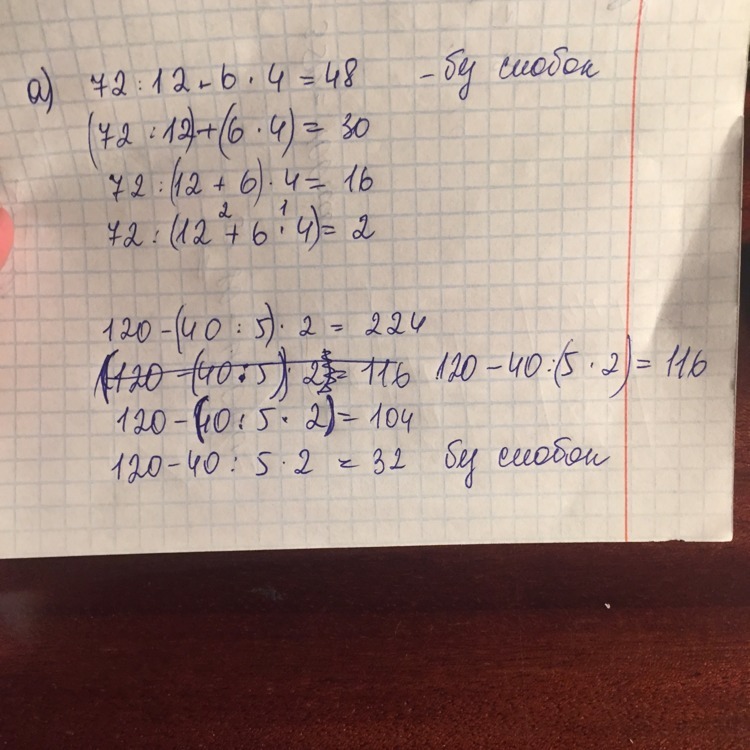 а) 72 : 12 + 6 · 4 = 48 – бу скобок
(72 : 12) + (6 · 4) = 30
72 : (12 + 6) · 4 = 16
2 1
72 : (12 + 6 · 4) = 2
120 – (40 : 5) · 2 = 224
(120 – (40 : 5) · 2) = 116 120 – 40 : (5 · 2) = 116
120 – (40 : 5 · 2) = 104
120 – 40 : 5 · 2 = 32 бу скобок